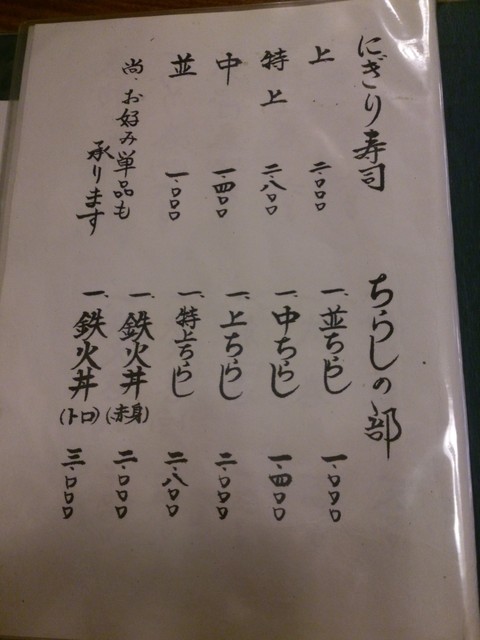 にぎり寿司
上 二、〇〇〇
特上 二、八〇〇
中 一、四〇〇
並 一、〇〇〇
尚、お好み単品も
承ります
ちらしの部
一、並ちらし 一、〇〇〇
一、中ちらし 一、四〇〇
一、上ちらし 二、〇〇〇
一、特上ちらし 二、八〇〇
一、鉄火丼(赤身) 二、〇〇〇
一、鉄火丼(トロ) 三、〇〇〇